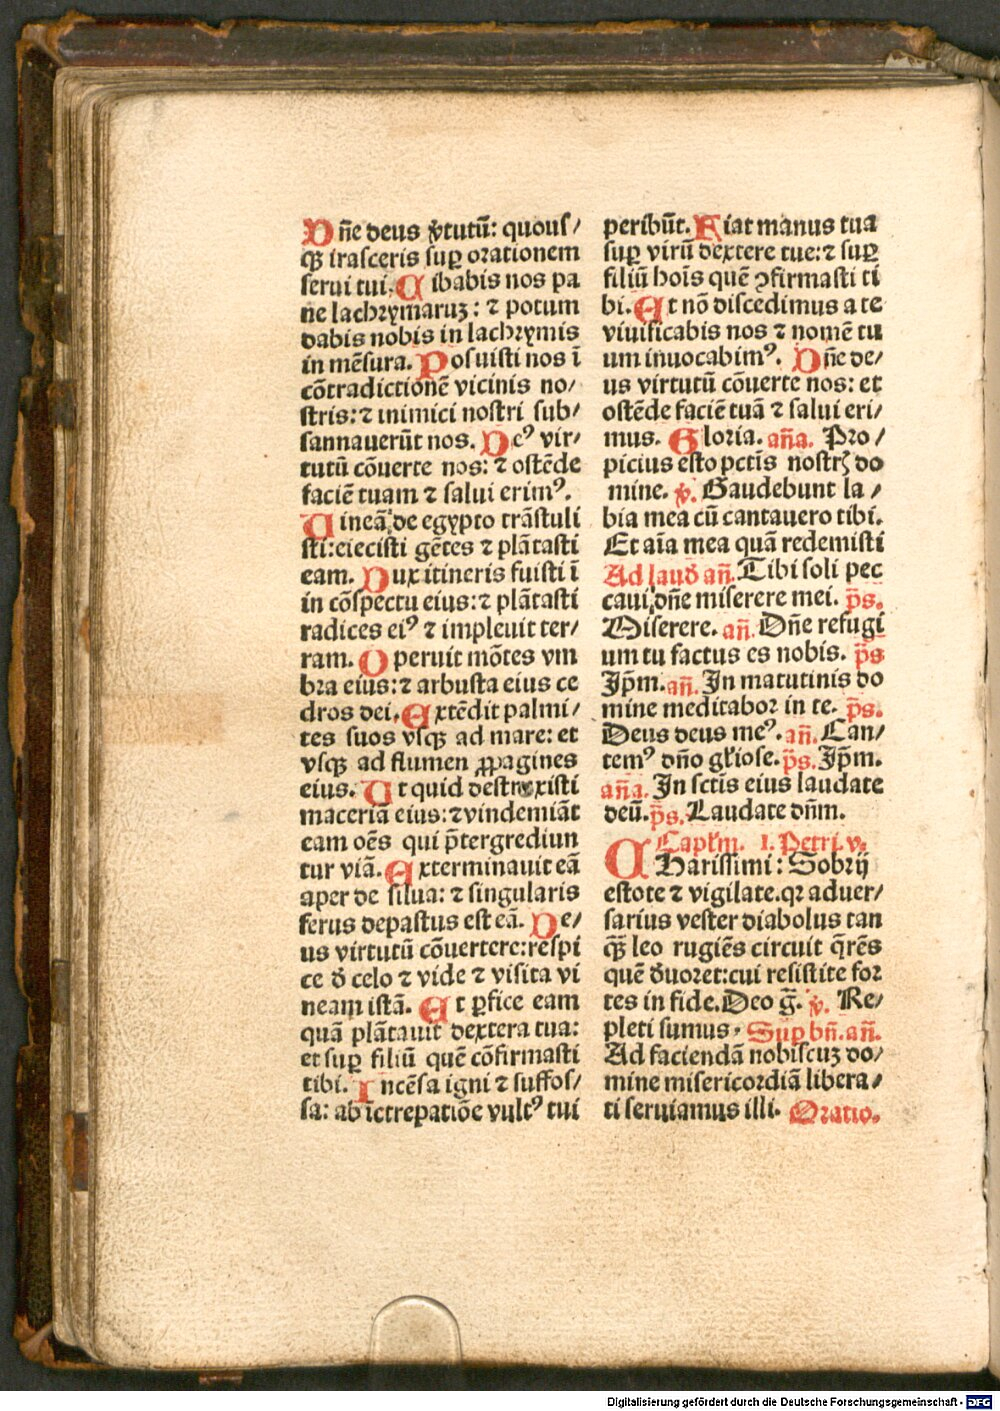 Dñe deus v̓tutū: quous/
qꝫ irasceris suꝑ orationem
serui tui. Cibabis nos pa
ne lachrymaruꝫ: ⁊ potum
dabis nobis in lachrymis
in mēsura. Posuisti nos ī
cōtradictionē vicinis no/
stris: ⁊ inimici nostri sub/
sannauerūt nos. Deꝰ vir/
tutū cōuerte nos: ⁊ ostēde
faciē tuam ⁊ salui erimꝰ.
Uineā de egypto trāstuli
sti: eiecisti gētes ⁊ plātasti
eam. Dux itineris fuisti ī
in cōspectu eius: ⁊ plātasti
radices eiꝰ ⁊ impleuit ter/
ram. Operuit mōtes vm
bra eius: ⁊ arbusta eius ce
dros dei. Extēdit palmi/
tes suos vsqꝫ ad mare: et
vsqꝫ ad flumen ꝓpagines
eius. Ut quid destruxisti
maceriā eius: ⁊ vindemiāt
eam oēs qui p̄tergrediun
tur viā. Exterminauit eā
aper de silua: ⁊ singularis
ferus depastus est eā. De/
us virtutū cōuertere: respi
ce đ celo ⁊ vide ⁊ visita vi
neam istā. Et ꝑfice eam
quā plātauit dextera tua:
et suꝑ filiū quē cōfirmasti
tibi. Incēsa igni ⁊ suffos/
sa: ab ictrepatiōe vultꝰ tui
peribūt. Fiat manus tua
suꝑ virū dextere tue: ⁊ suꝑ
filiū hoīs quē ꝯfirmasti ti
bi. Et nō discedimus a te
viuificabis nos ⁊ nomē tu
um inuocabimꝰ. Dñe de/
us virtutū cōuerte nos: et
ostēde faciē tuā ⁊ salui eri/
mus. Gloria. aña. Pro/
picius esto pctīs nostrꝭ do
mine. v̓. Gaudebunt la/
bia mea cū cantauero tibi.
Et aīa mea quā redemisti
Ad lauđ añ. Tibi soli pec
caui dñe miserere mei. p̄s.
Miserere. añ. Dñe refugi
um tu factus es nobis. p̄s
Ip̄m. añ. In matutinis do
mine meditabor in te. p̄s.
Deus deus meꝰ. añ. Can/
temꝰ dño gl̓iose. p̄s. Ip̄m.
aña. In sctīs eius laudate
deū. p̄s. Laudate dñm.
Capl̓m. I. Petri. v.
CHarissimi: Sobrij
estote ⁊ vigilate. qꝛ aduer/
sarius vester diabolus tan
qꝫ̄ leo rugiēs circuit q̄rēs
quē đuoret: cui resistite for
tes in fide. Deo gr̄. v̓. Re/
pleti sumus. Suꝑ bñ. añ.
Ad faciendā nobiscuꝫ do/
mine misericordiā libera/
ti seruiamus illi. Oratio.
Digitalisierung gefördert durch die Deutsche Forschungsgemeinschaft - DFG